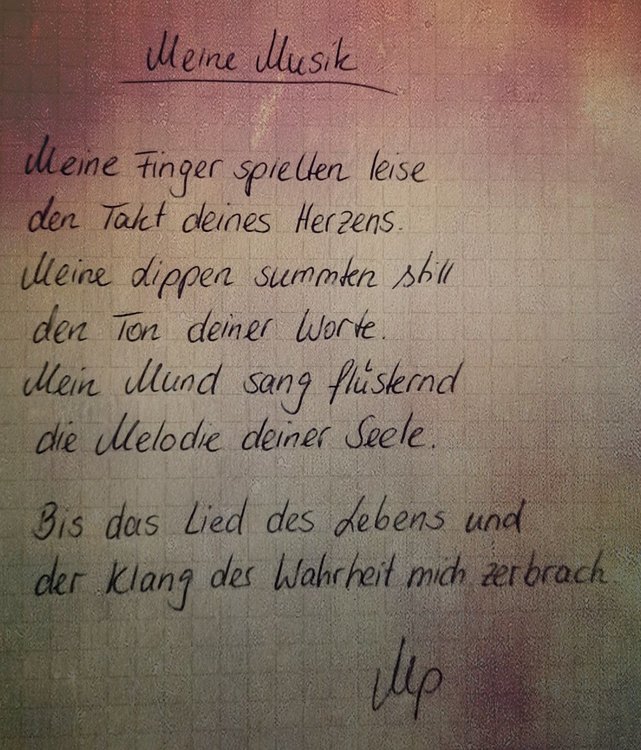 Meine Musik
Meine Finger spielten leise
den Takt deines Herzens.
Meine Lippen summten still
den Ton deiner Worte.
Mein Mund sang flüsternd
die Melodie deiner Seele.
Bis das Lied des Lebens und
der Klang der Wahrheit mich zerbrach.
Mp